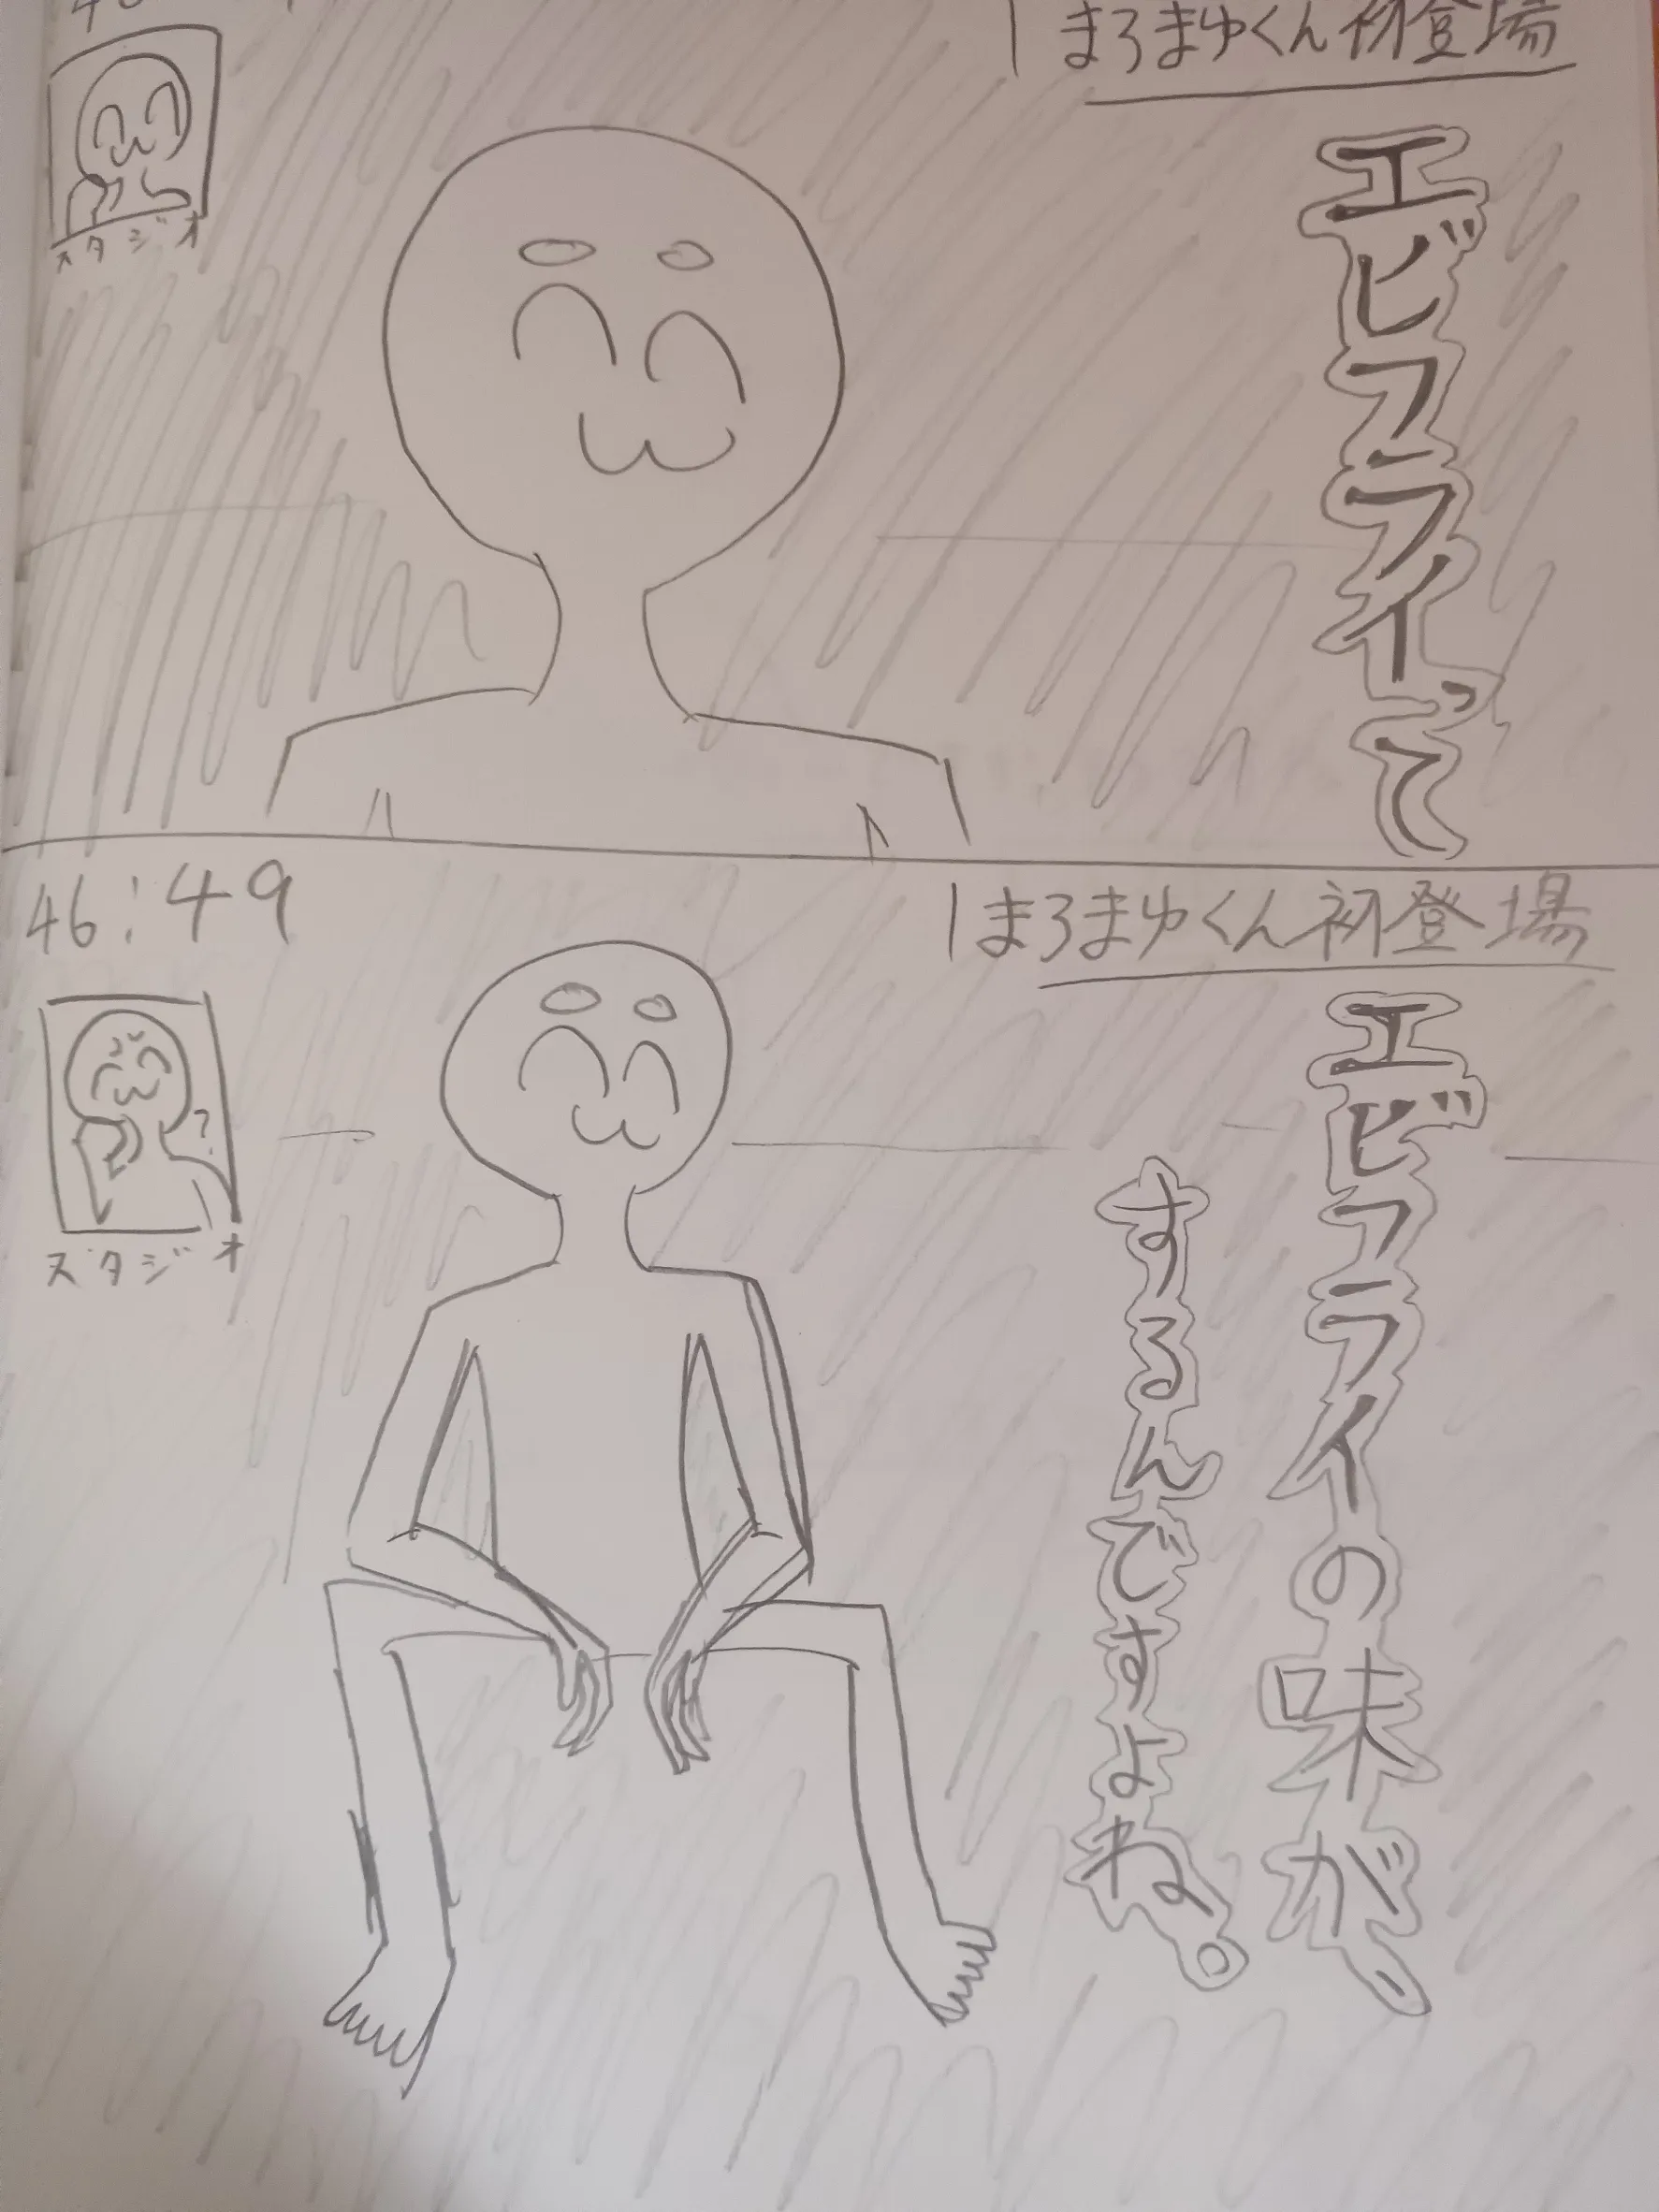 まろまゆくん初登場
スタジオ
エビフライって
46:49
まろまゆくん初登場
スタジオ
?
エビフライの味が
するんですよね。